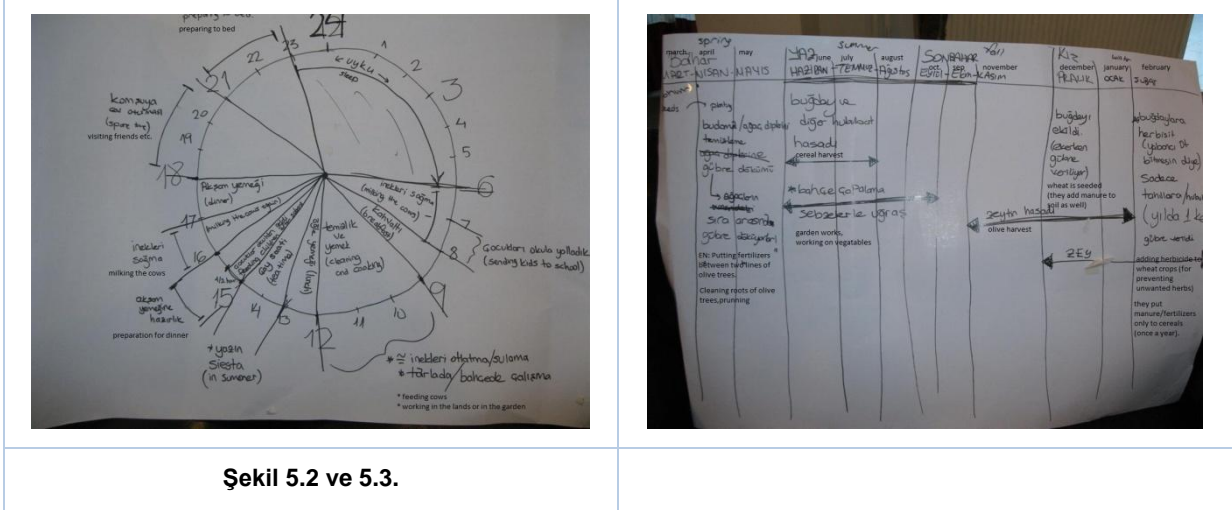 preparing to bed.
preparing to bed
24
23
22
21
20
19
18
17
16
15
14
13
12
11
10
9
8
7
6
5
4
3
2
1
uyku
sleep
komşuya
(spare time)
visiting friends etc.
Akşam yemeği
(dinner)
(milking the cows again)
inekleri
sağma
milking the cows
akşam
yemeğine
hazırlık
preparation for dinner
* yazın
siesta
(in summer)
çay saati
(teatime)
(lunch)
temizlik
ve
yemek
(cleaning
and cooking)
inekleri sağma
(milking the cows)
kahvaltı
(breakfast)
Çocukları okula yolladık
(sending kids to school)
* ≅ inekleri otlatma/sulama
* tarlada/bahçede çalışma
* feeding cows
* working in the lands or in the garden
spring
march april may
Bahar
MART-NİSAN-MAYIS
summer
YAZ june july august
HAZİRAN-TEMMUZ-Ağustos
fall
SONBAHAR
oct. sep. november
EYLÜL-Ekim-KASIM
KIŞ
december january february
ARALIK OCAK ŞUBAT
budama/ağaç dipleri
temizleme
gübre dökümü
sıra arasında
gübre
EN: Putting fertilizers
between two lines of
olive trees.
Cleaning roots of olive
trees,prunning
buğday ve
diğer hububat
hasadı
cereal harvest
* bahçe çapalama
sebzelerle uğraş
garden works,
working on vegatables
zeytin hasadı
olive harvest
buğdayı
ekildi.
(ekerken
gübre
veriliyor)
wheat is seeded
(they add manure to
soil as well)
ZEY
buğdaylara
herbisit
(yabancı ot
bitmesin diye)
Sadece
tahıllara/
(yılda 1 ke
gübre verildi
adding herbicide to
wheat crops (for
preventing
unwanted herbs)
they put
manure/fertilizers
only to cereals
(once a year).
Şekil 5.2 ve 5.3.